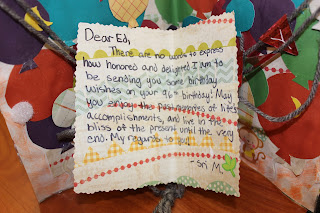 Dear Ed,
There are no words to express
how honored and delighted I am to
be sending you some birthday
wishes on your 96th birthday! May
you enjoy the past memories of life's
accomplishments, and live in the
bliss of the present until the very
end. My regards to you!
- Sri M.